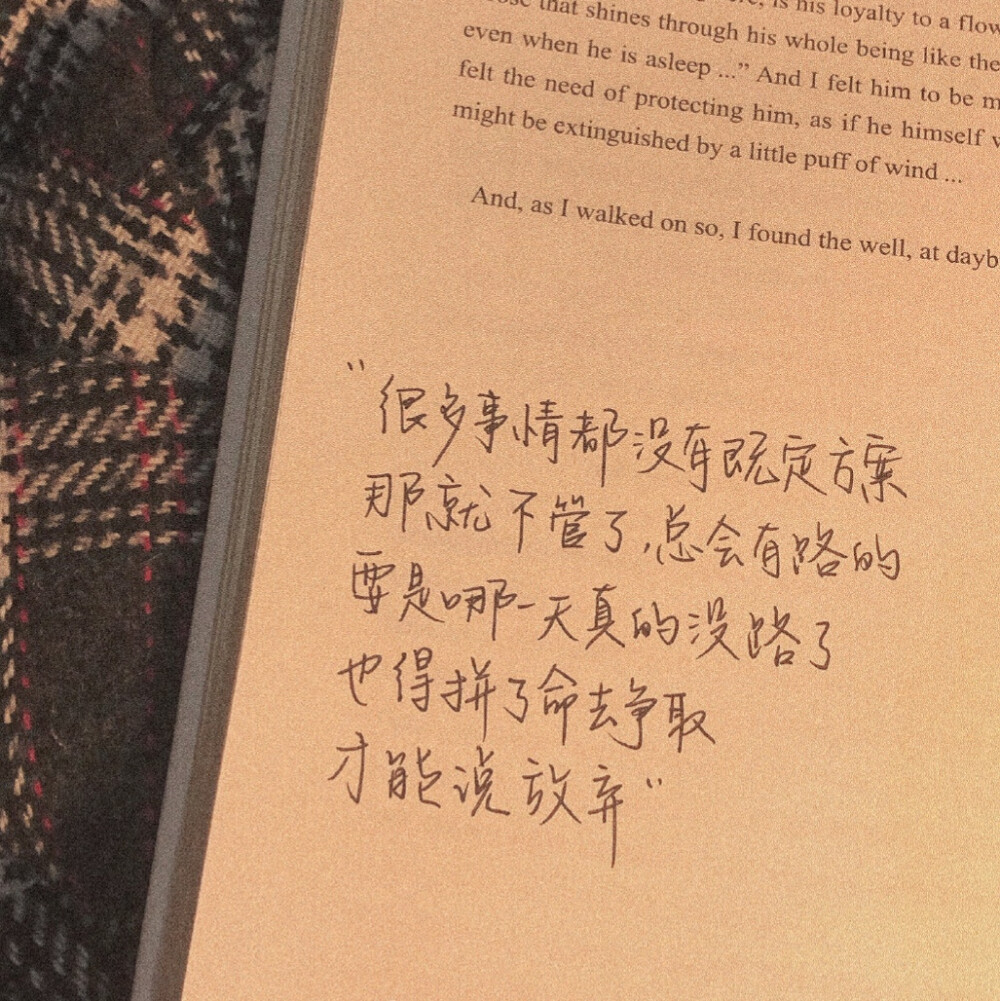 is his loyalty to a
that shines through his whole being like the
even when he is asleep ...” And I felt him to be
felt the need of protecting him, as if he himself
might be extinguished by a little puff of wind ...
And, as I walked on so, I found the well, at
“很多事情都没有既定方案
那就不管了,总会有路的
要是哪一天真的没路了
也得拼了命去争取
才能说放弃”